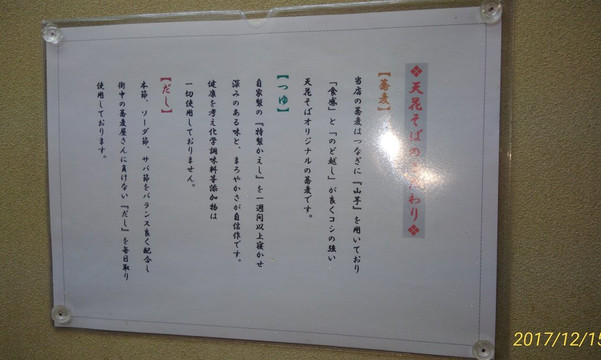 ❖天花そばの わり❖
【蕎麦】
当店の蕎麦はつなぎに『山芋』を用いており
「食感」と「のど越し」が良くコシの強い
天花そばオリジナルの蕎麦です。
【つゆ】
自家製の『特製かえし』を一週間以上寝かせ
深みのある味と、まろやかさが自信作です。
健康を考え化学調味料等添加物は
一切使用しておりません。
【だし】
本節、ソーダ節、サバ節をバランス良く配合し
街中の蕎麦屋さんに負けない『だし』を毎日取り
使用しております。
2017/12/15